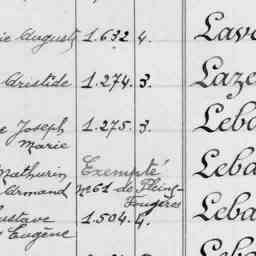 ie Auguste 1.632 4. Lav
Aristide 1.274. 3. Laze
e Joseph 1.275. 3. Leba
Marie
Mathurin Exempté Leba
Armand n° 61 de Pleine-
Fougères
Gustave 1.504. 4. Leba
Eugène
Leba